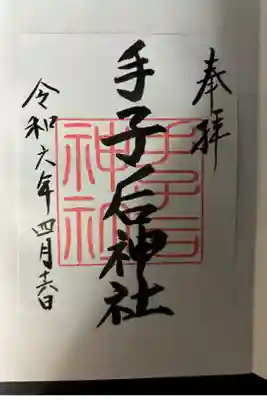 奉拝
手子后神社
令和六年四月十六日
手子后神社